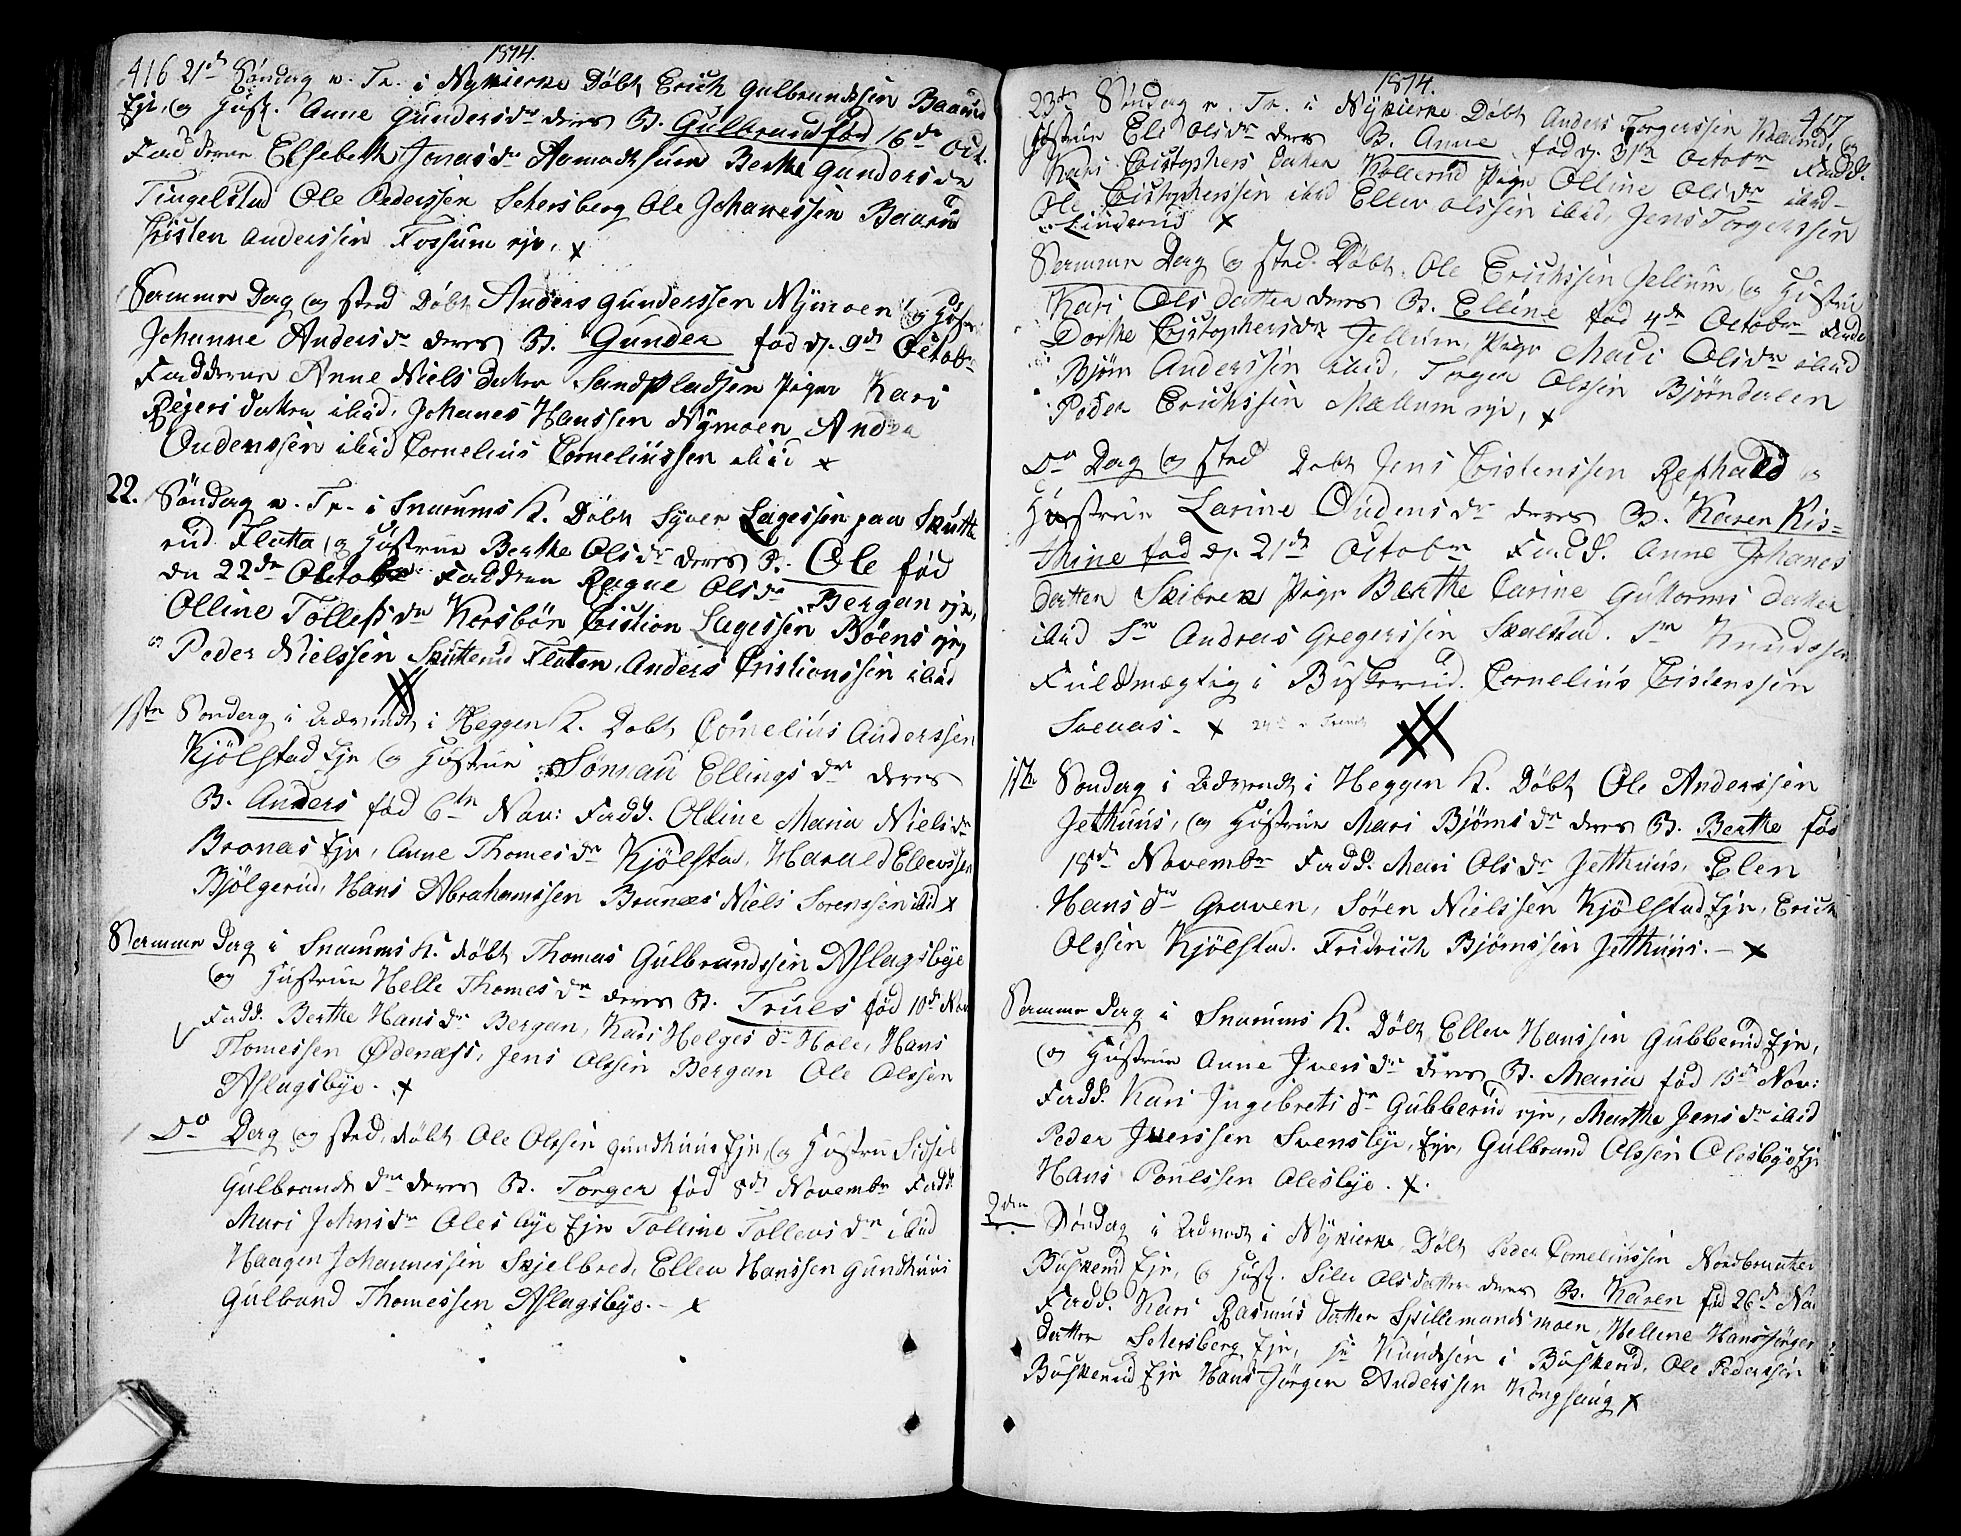 1814.
416 21de Søndag e. Tr. i Nykierke Døbt Erich Gulbrandssen Baarud
Eje, og Hust. Anne Gundersdr deres B. Gulbrand fød 16de Oct.
Fadderne Elsebeth Jonasdr Berthe Gundersdr
Tingelstad Ole Pederssen Setersberg Ole Johanessen Baarud
Cristen Anderssen Fossum eje, x
Samme Dag og sted Døbt Anders Gunderssen Nymoen og Hustr:
Johanne Andersdr deres B. Gunder fød d. 9de Octobr
Fadderne Anne Niels datter Sandpladsen Pige Kari
Rejers datter ibid, Johanes Hanssen Nymoen Andrea
Oudenssen ibid Cornelius Corneliussen ibid x
22. Søndag e. Tr. i Snarums K. Døbt Syver Lagessen paa Skutte
rud Flata, og Hustrue Berthe Olsdr deres B. Ole fød
den 22de October Faddren Ragne Olsdr Bergan eje,
Olline Tollefsdr Korsbøn Cristion Lagessen Bøens eje,
og Peder Nielssen Skutterud Flaten, Anders Cristionssen ibid
1ste Søndag i Advendt i Heggen K. Døbt Cornelius Anderssen
Kjølstad Eje og Hustrue Ellingsdr deres
B. Anders fød 6te Nov: Fadd. Olline Maria Nielsdr
Bronæs Eje, Anne Thomesdr Kjølstad, Harald Elevssen
Bjølgerud, Hans Abrahamssen Brunæs Niels Sorenssen ibid x
Samme Dag i Snarums K. Døbt Thomas Gulbrandssen Aslagsbye
og Hustrue Helle Thomesdr deres B. Truls fød 10de Nov
Fadd. Berthe Hansdr Bergan, Kari Helgesdr Hole, Hans
Thomessen Ødenæss, Jens Olssen Bergan Ole Olssen
Aslagsbye. x
Do Dag og sted, Døbt Ole Olssen Gundhuus Eje, og Hustrue Sidsel
Gulbrandsdr deres B. Torger fød 8de Novembr Fadd.
Mari Johnsdr Olesbye Eje Tolline Tollevsdr ibid
Haagen Johannessen Skjelbred, Ellev Hanssen Gundhuus
Gulbrand Thomessen Aslagsbye. - x
1814.
417
23de Søndag e. Tr. i Nykierke Døbt Anders Torgerssen Kollerud, og
Hustrue Eli Olsdr deres B. Anne fød d. 31te Octobr Fadd.
Kari Cristophers datter Kollerud Pige Olline Olsdr ibid
Ole Cristopherssen ibid Ellev Olssen ibid, Jens Torgerssen
Linderud x
Samme Dag og sted. Døbt Ole Erichssen Jellum, og Hustrue
Kari Ols datter deres B. Elline fød 4de Octobr Fadd.
Dorthe Cristophersdr Jellum, Pige Mari Olsdr ibid
Bjørn Anderssen ibid, Torger Olssen Bjøndalen
Peder Erichssen Mællum eje, x
Do Dag og sted Døbt Jens Cristenssen Refhald og
Hustrue Larine Oudensdr deres B. Karen Kis=
thine fød d. 21de Octobr Fadd. Anne Johanes
datter Skibrek Pige Berthe Carine Guttorms datter
ibid Sr Andreas Gregerssen Skalstad. Sr Knudssen
Fuldmægtig i Buskerud. Cornelius Cristenssen
Svenas. x
1te Søndag i Advendt i Heggen K. Døbt Ole Anderssen
Jethuus, og Hustrue Mari Bjørnsdr deres B. Berthe fød
18de Novembr Fadd. Mari Olsdr Jethuus, Elen
Hansdr Graven, Søren Nielssen Kjølstad Eje, Erich
Olssen Kjølstad. Fridrich Bjørnssen Jethuus. - x
Samme Dag i Snarums K. Døbt, Ellev Hanssen Gubberud Eje,
og Hustrue Anne Iversdr deres B. Maria fød 15de Nov:
Fadd. Kari Ingebretsdr Gubberud eje, Marthe Jensdr ibid
Peder Iverssen Svensbye, Eje, Gulbrand Olssen Olesbye Eje
Hans Poulssen Olesbye. x.
2den Søndag i Advendt i Nykierke, Døbt Peder Corneliussen Nordbraaten
Buskerud Eje, og Hust. Siler Olsdatter deres B. Karen fød 26de Nov
Fadd. Kari Rasmus datter Spillemandsmoen, Hellene Hansjørgen
datter Setersberg Eje, Sr Knudssen i Buskerud, Ole Pederssen
Buskerud Eje Hans Jørgen Anderssen Kongsaug x